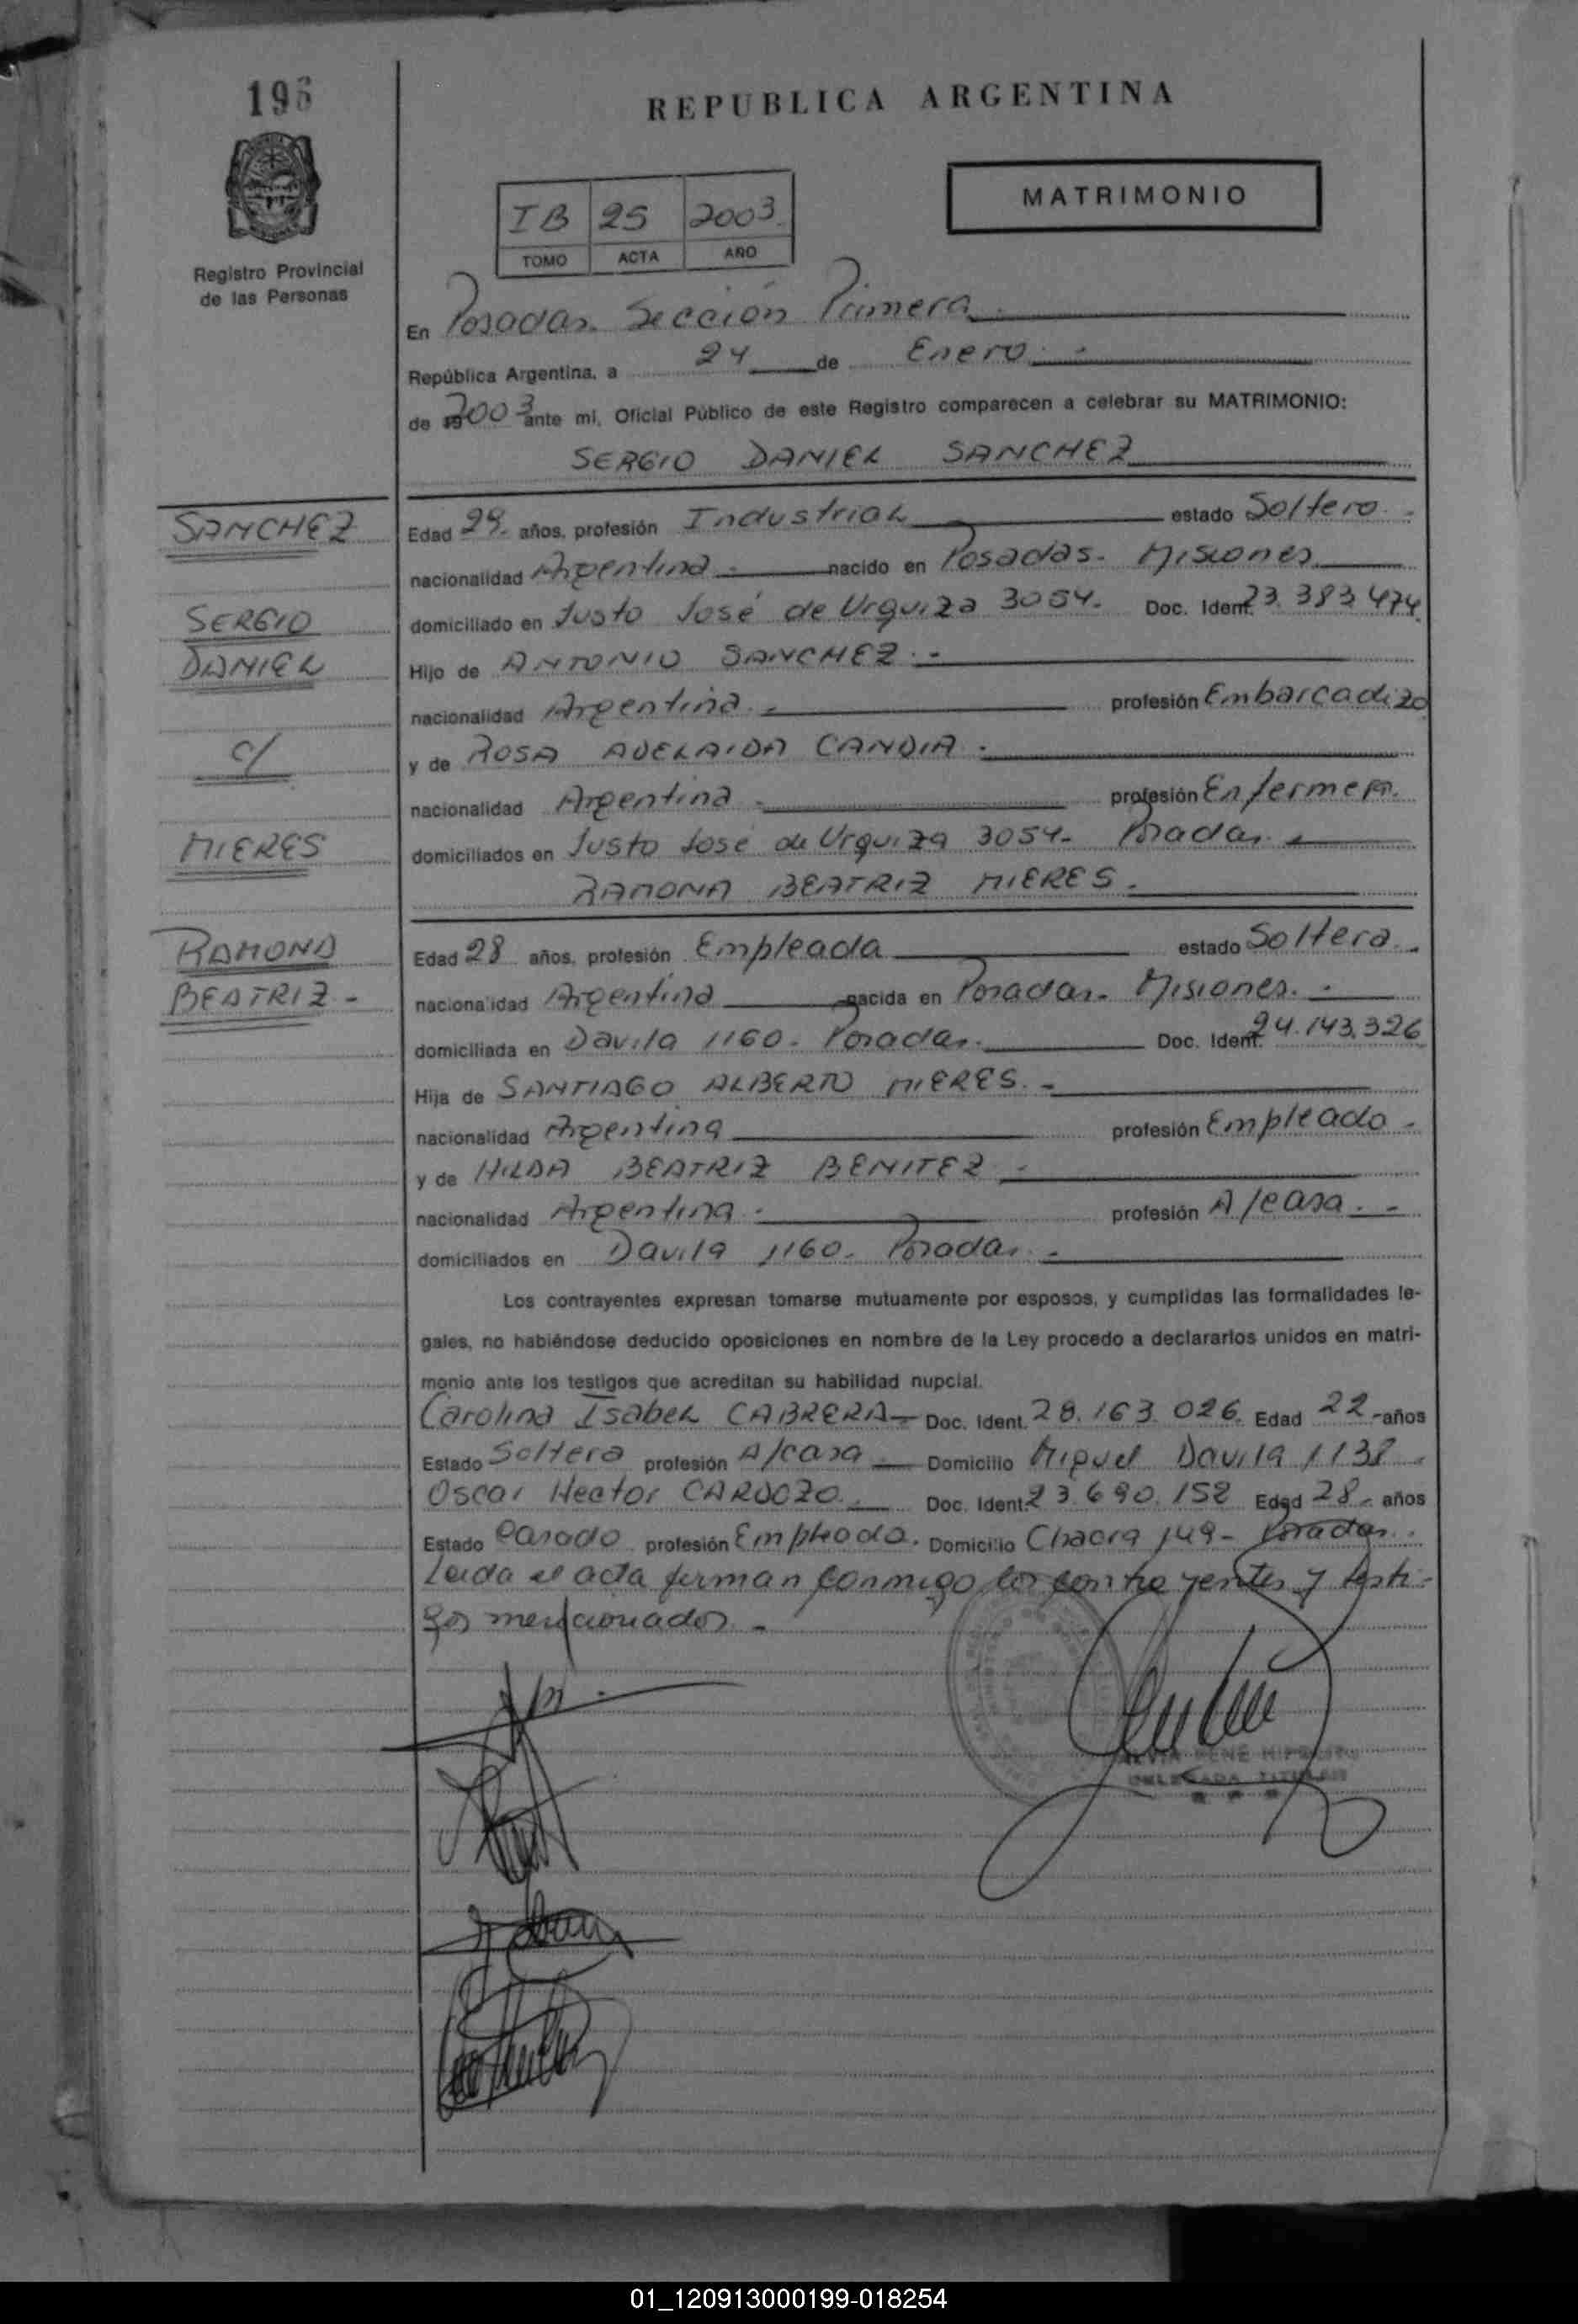 REPUBLICA ARGENTINA
MATRIMONIO
IB 25 2003
TOMO ACTA AÑO
Registro Provincial
de las Personas
En Posadas. Sección Primera
República Argentina, a 24 de Enero
de 2003 ante mi, Oficial Público de este Registro comparecen a celebrar su MATRIMONIO:
SERGIO DANIEL SANCHEZ
SANCHEZ
SERGIO
DANIEL
c/
MIERES
RAMONA
BEATRIZ.-
Edad 29. años, profesión Industrial estado Soltero.-
nacionalidad Argentina.- nacido en Posadas. Misiones
domiciliado en Justo José de Urquiza 3054. Doc. Ident. 23.383.474
Hijo de ANTONIO SANCHEZ.-
nacionalidad Argentina.- profesión Embarcadizo
y de ROSA ADELAIDA CANDIA.
nacionalidad Argentina.- profesión Enfermera.
domiciliados en Justo José de Urquiza 3054- Posadas.-
RAMONA BEATRIZ MIERES.
Edad 28 años, profesión Empleada estado Soltera.-
nacionalidad Argentina nacida en Posadas. Misiones.-
domiciliada en Davila 1160. Posadas. Doc. Ident. 24.143.326
Hija de SANTIAGO ALBERTO MIERES.-
nacionalidad Argentina profesión Empleado.-
y de HILDA BEATRIZ BENITEZ.-
nacionalidad Argentina. profesión A/casa.-
domiciliados en Davila 1160. Posadas.-
Los contrayentes expresan tomarse mutuamente por esposos, y cumplidas las formalidades le-
gales, no habiéndose deducido oposiciones en nombre de la Ley procedo a declararlos unidos en matri-
monio ante los testigos que acreditan su habilidad nupcial.
Carolina Isabel CABRERA- Doc. Ident. 28.163.026. Edad 22-años
Estado Soltera profesión A/casa Domicilio Miguel Davila 1138.
Oscar Hector CARDOZO. Doc. Ident. 23.690.152 Edad 28. años
Estado Casado profesión Empleado. Domicilio Chacra 149- Posadas.
Leida el acta firman conmigo los contrayentes y testi-
gos mencionados.-
DELEGADA TITULAR
01_120913000199-018254